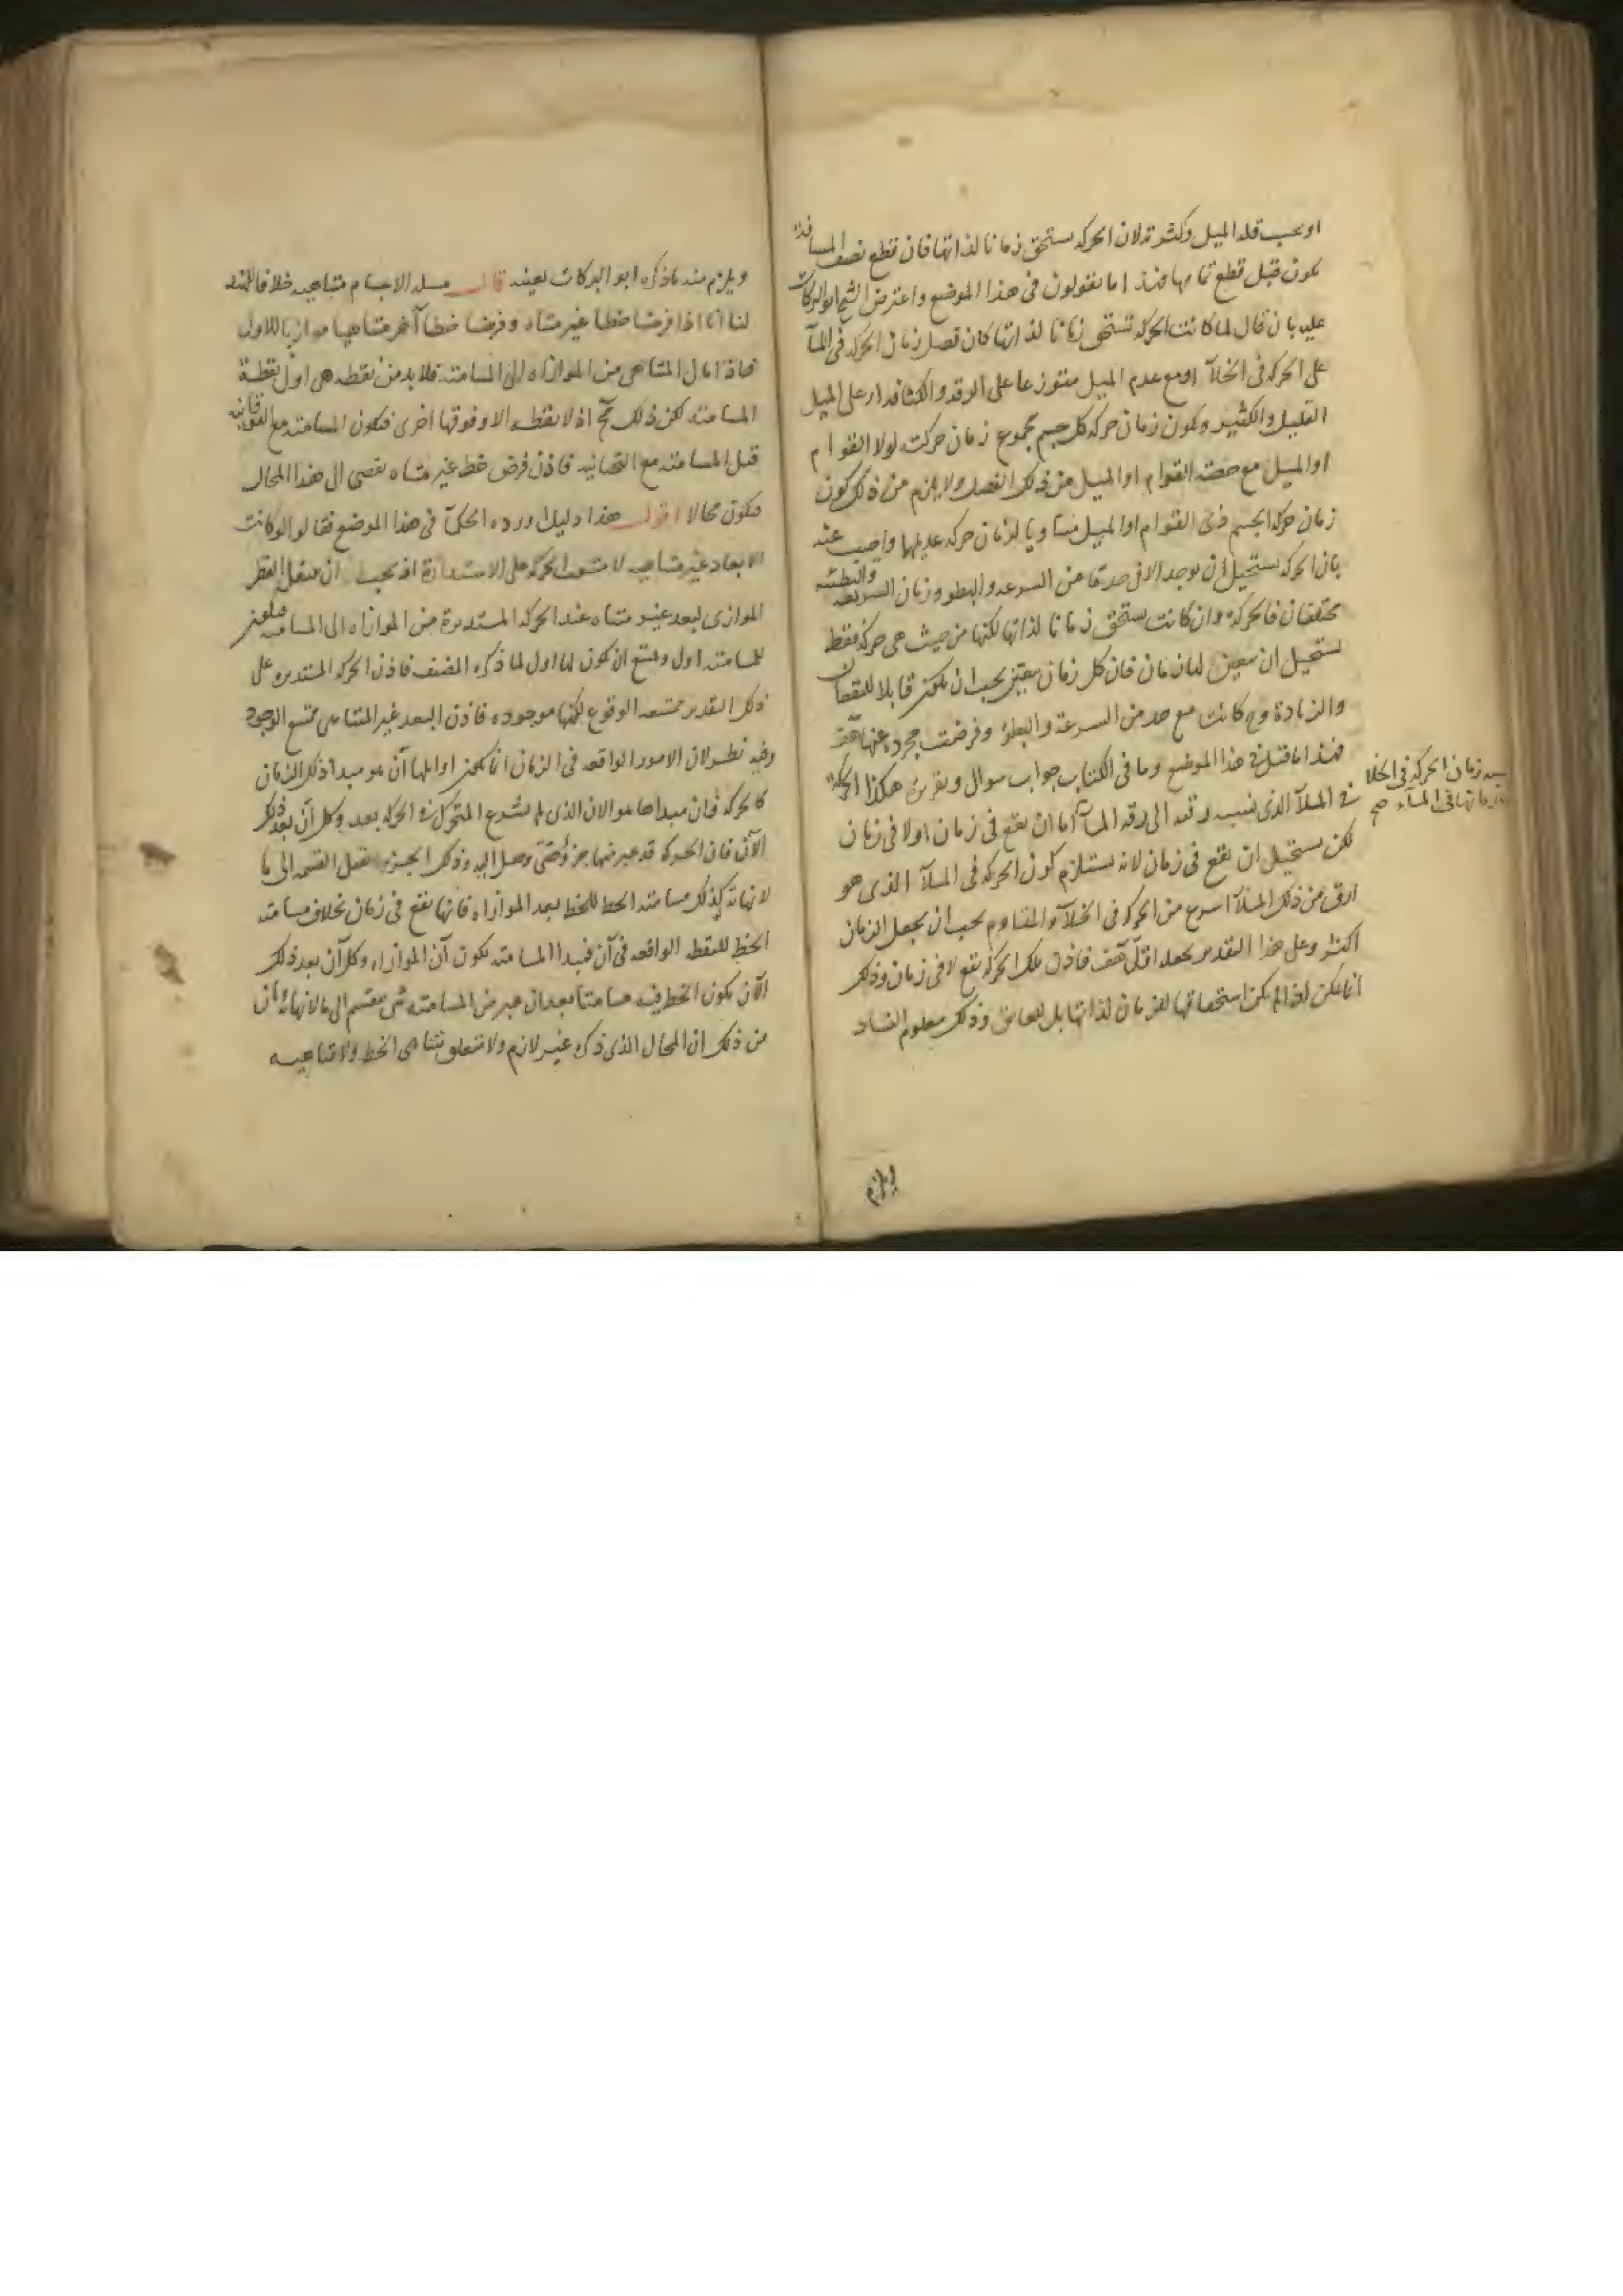 او بحسب قله الميل وكثرته لان الحركه يستحق زمانا لذاتها فان قطع نصف المسافة
يكون قبل قطع تمامها فهذا ما يقولون فى هذا الموضع واعترض الشيخ ابو البركات
عليه بان قال لما كانت الحركه تستحق زمانا لذاتها كان فضل زمان الحركه فى الملآ
على الحركه فى الخلآ او مع عدم الميل متوزعا على الرقه والكثافه او على الميل
القليل والكثير ويكون زمان حركه كل جسم مجموع زمان حركته لولا القوام
او الميل مع حصته القوام او الميل من ذلك الفضل ولا يلزم من ذلك كون
زمان حركه الجسم ذى القوام او الميل مساويا لزمان حركه عديمها واجيب عنه
بان الحركه يستحيل ان يوجد الا فى حد ما من السرعه والبطو وزمان السريعه والبطيئه
مختلفان فالحركة وان كانت يستحق زمانا لذاتها لكنها من حيث هى حركة فقط
يستحيل ان يتعين لها زمان فان كل زمان معين يجب ان يكون قابلا للنقصان
والزيادة وح كانت مع حد من السرعة والبطؤ وفرضت مجرده عنها هف
فهذا ما قيل فى هذا الموضع وما فى الكتاب جواب سوال وتقريره هكذا الحركة
فى الملآ الذى نسبه رقته الى رقه الملآ اما ان يقع فى زمان او لا فى زمان
نسبه زمان الحركه فى الخلا
زمانها فى الملآء صح
لكن يستحيل ان يقع فى زمان لانه يستلزم كون الحركه فى الملآ الذى هو
ارق من ذلك الملآ اسرع من الحركه فى الخلآ والمقاوم يجب ان يجعل الزمان
اكثر وعلى هذا التقدير يجعله اقل هف فاذن تلك الحركه يقع لا فى زمان وذلك
انما يمكن اذا لم يكن استحقاقها للزمان لذاتها بل للعائق وذلك معلوم الفساد
ويلزم
ويلزم منه ما ذكره ابو البركات بعينه قال مسله الاجسام متناهيه خلافا للهند
لنا انا اذا فرضنا خطا غير متناه وفرضنا خطا آخر متناهيا موازيا للاول
فاذا مال المتناهى من الموازاه الى المسامته فلا بد من نقطه هى اول نقطة
المسامته لكن ذلك مح اذ لا نقطه الا وفوقها اخرى فتكون المسامته مع الفوقانيه
قبل المسامته مع التحتانيه فاذن فرض خط غير متناه يفضى الى هذا المحال
فيكون محالا اقول هذا دليل اورده الحكمآ فى هذا الموضع فقالوا لو كانت
الابعاد غير متناهيه لامتنعت الحركه على الاستدارة اذ يجب ان ينتقل القطر
الموازى لبعد غير متناه عند الحركه المستديرة من الموازاه الى المسامته فيكون
للمسامته اول ويمتنع ان يكون لها اول لما ذكره المصنف فاذن الحركه المستديره على
ذلك التقدير ممتنعه الوقوع لكنها موجوده فاذن البعد غير المتناهى ممتنع الوجود
وفيه نظر لان الامور الواقعه فى الزمان انما يكون اوايلها آن هو مبدا ذلك الزمان
كالحركه فان مبداها هو الان الذى لم يشرع المتحرك فى الحركه بعد وكل آن بعد ذلك
الآن فان الحركه قد عبر فيها جزؤ حتى وصل اليه وذلك الجزء يقبل القسمه الى ما
لا نهاية كذلك مسامته الخط للخط بعد الموازاه فانها يقع فى زمان بخلاف مسامته
الخط للنقطه الواقعه فى آن فمبدا المسامته يكون آن الموازاه وكل آن بعد ذلك
الآن يكون الخط فيه مسامتا بعد ان عبر من المسامته شى ينقسم الى ما لا نهايه
من ذلك ان المحال الذى ذكره غير لازم ولا متعلق بتناهى الخط ولا تناهيه